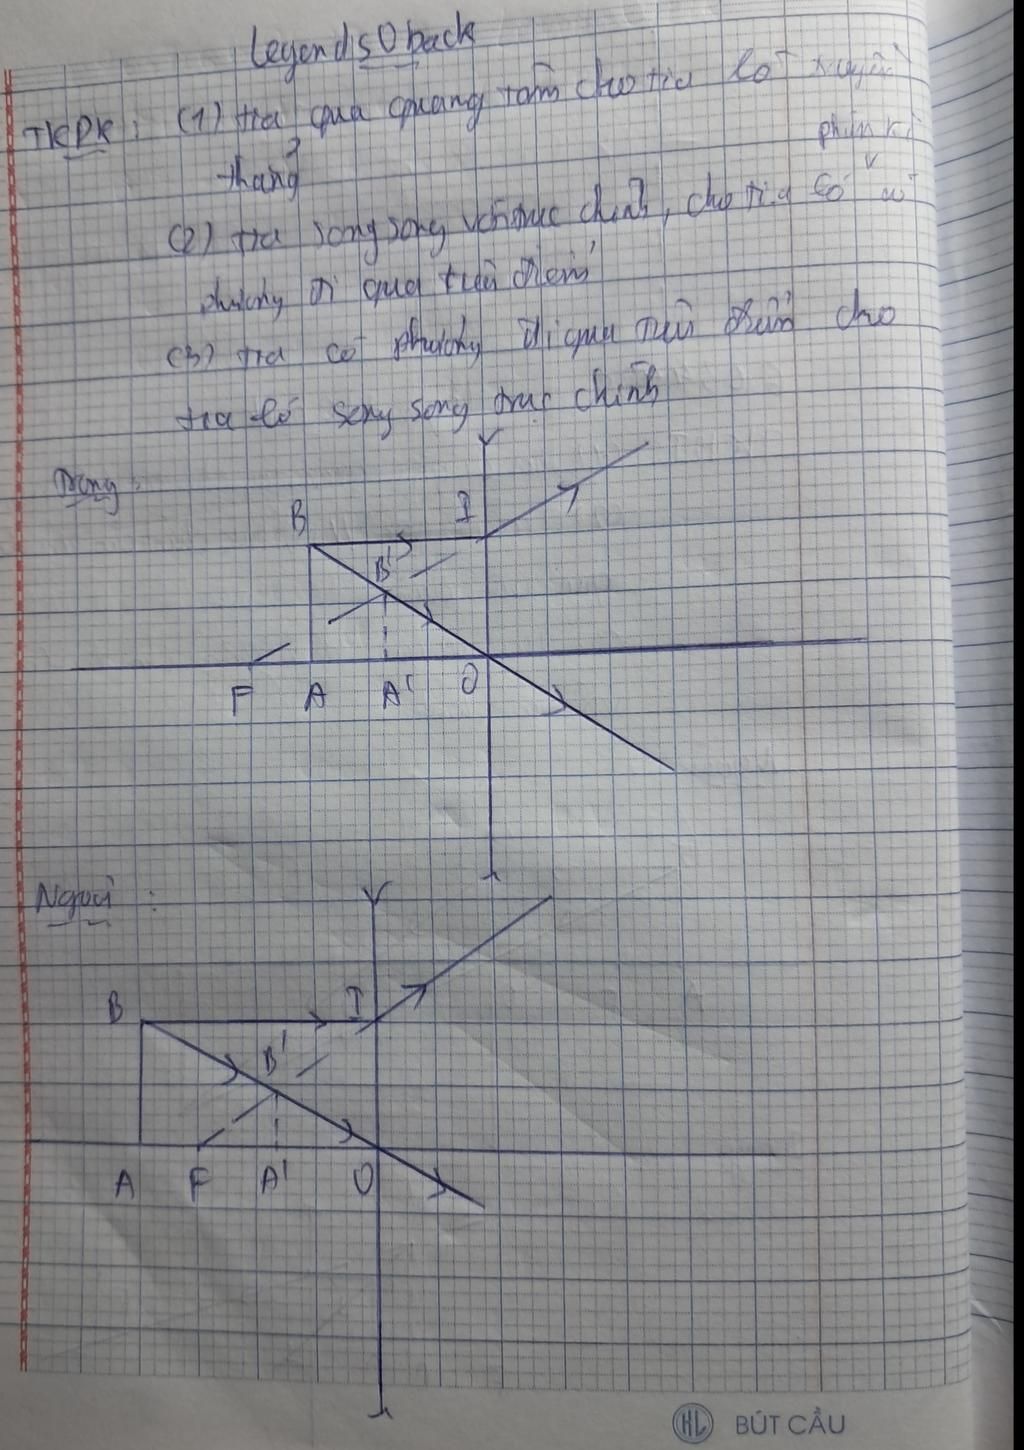 Legends0back
TKPK: (1) tia qua quang tâm cho tia ló truyền
thẳng
phân kì
(2) tia song song với trục chính, cho tia ló
phương đi qua tiêu điểm
(3) tia có phương đi qua tiêu điểm cho
tia ló song song trục chính
Trong:
B I
B'
F A A' O
Ngoài:
B I
B'
A F A' O
HL BÚT CẦU